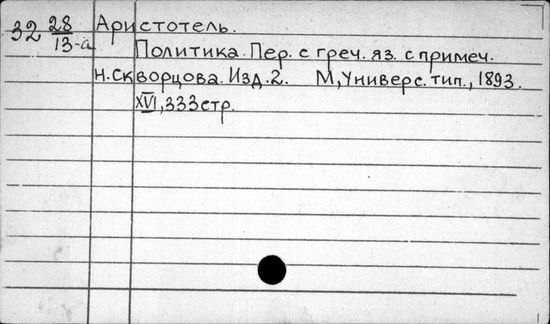 32 28/13-а Аристотель.
Политика. Пер. с греч. яз. с примеч.
Н. Скворцова. Изд. 2. М, Универс. тип., 1893.
XVI, 333 стр.